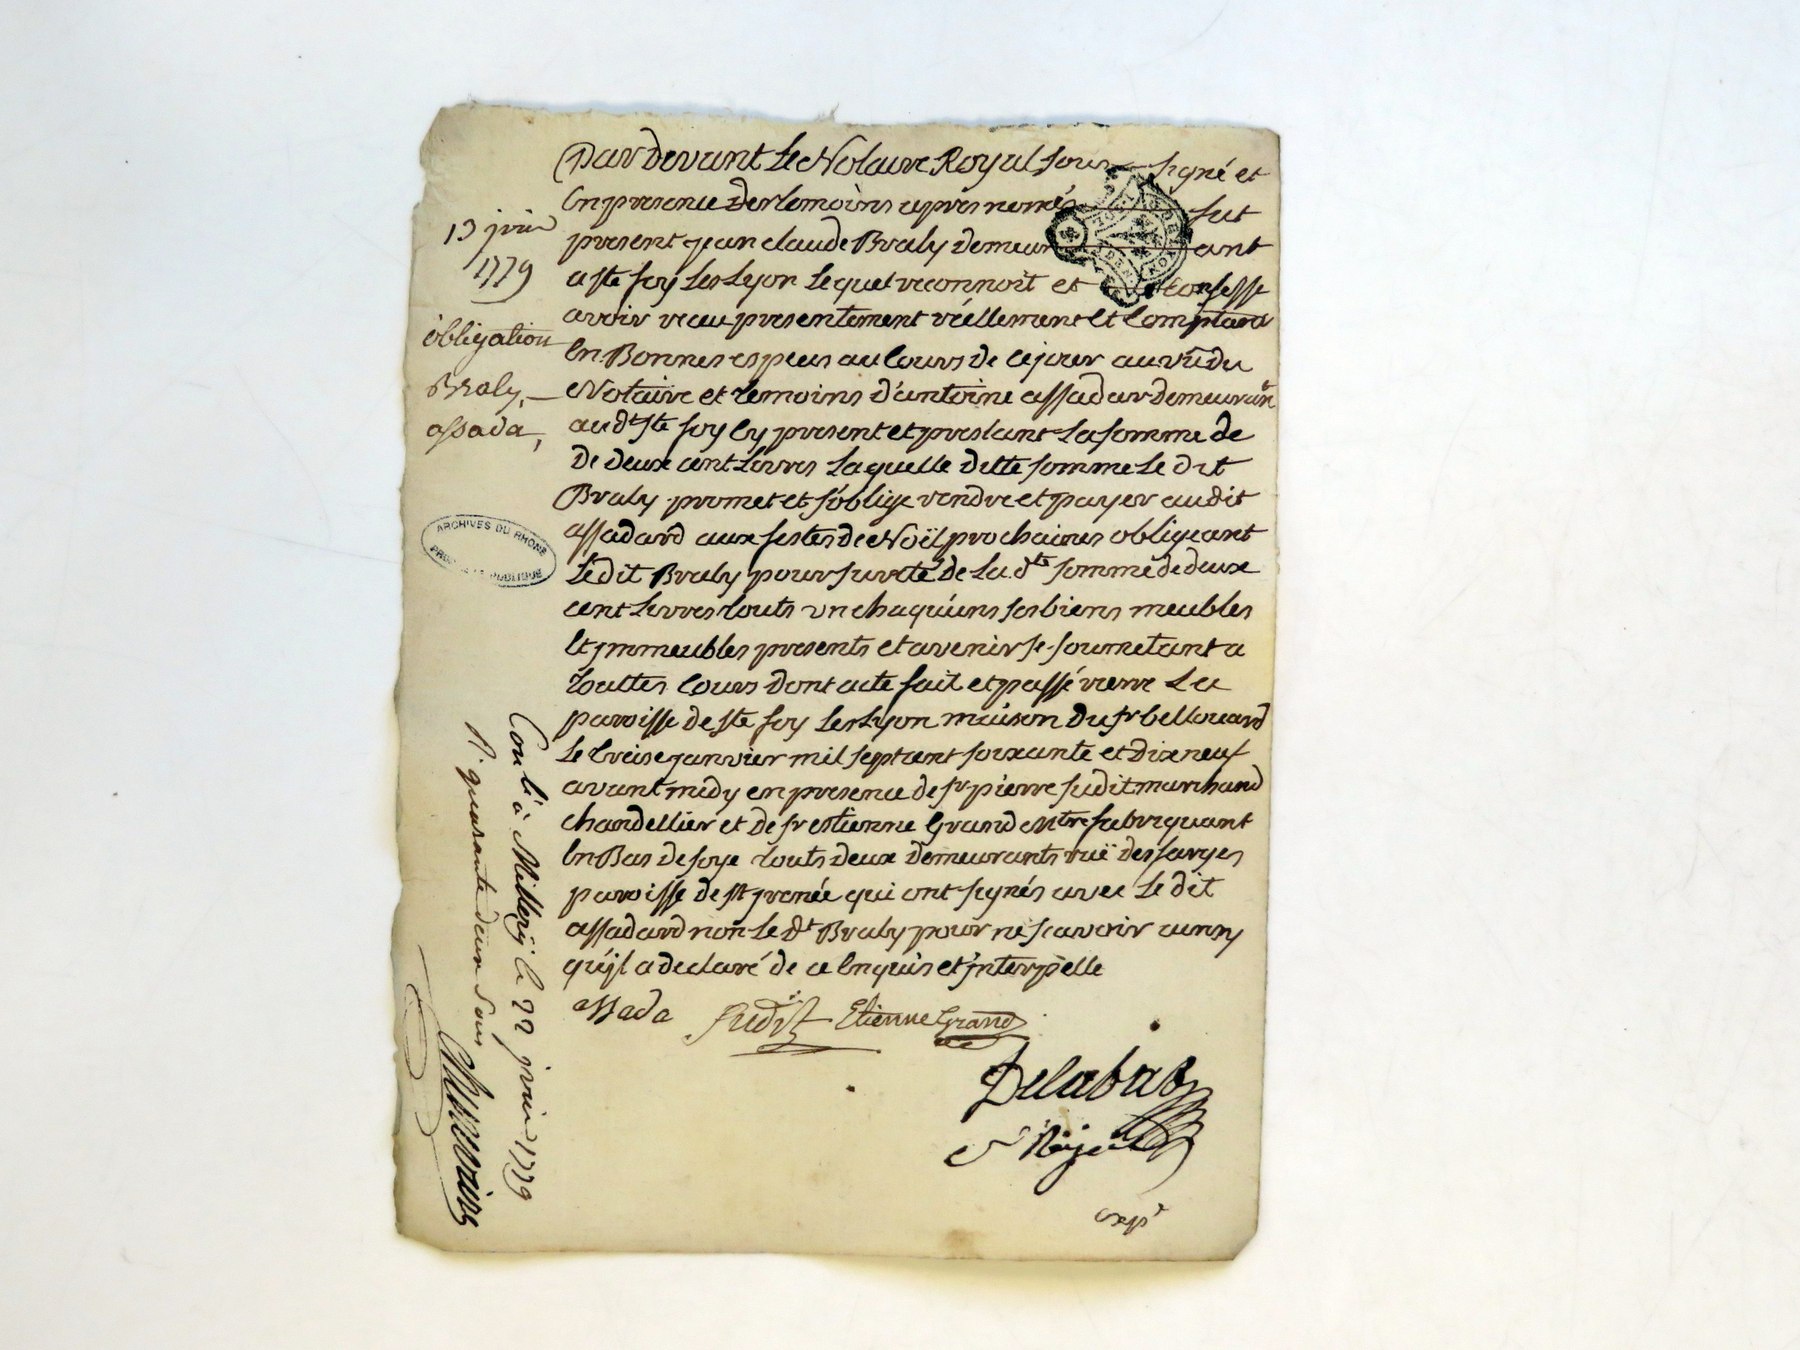 13 jvier
1779
obligation
Braly,
assada,
ARCHIVES DU RHONE
PUBLIQUE
Pardevant Le Notaire Royal sous signé et
En presence des temoins apres només fut
present jean claude Braly demeurant
a ste foy Les Lyon Lequel reconnoit et confesse
avoir recu presentement réellement Et Comptant
En Bonnes especes au Cours de ce jour au vû du
Notaire et temoins d'antoine assadar demeurant
audt ste foy Cy present et prestant La somme de
De deux cent Livres Laquelle ditte somme Le dit
Braly promet et s'oblige rendre et payer audit
assadard aux festes de Noël prochaines obligeant
Le dit Braly pour sureté de La dte somme de deux
cent Livres touts un chaq'uns ses biens meubles
Et jmmeubles presents et avenir se soumetant a
touttes Cours dont acte fait et passé riere La
paroisse de ste foy Les Lyon maison du sr bellouard
Le treise janvier mil sept cent soixante et dix neuf
avant midy en presence de sr pierre Judit marchand
chandellier et de sr estienne Grand Mtre fabriquant
En Bas de soye touts deux demeurants ruë des farges
paroisse de st jrenée qui ont signés avec Le dit
assadard non Le dt Braly pour ne scavoir
qu'jl a declaré de ce Enquis et jnterpellé
assada Judit Etienne Grand
Delabat
Nre
expé
Conlé à Millery le 22 jvier 1779
R. quarante deux sous